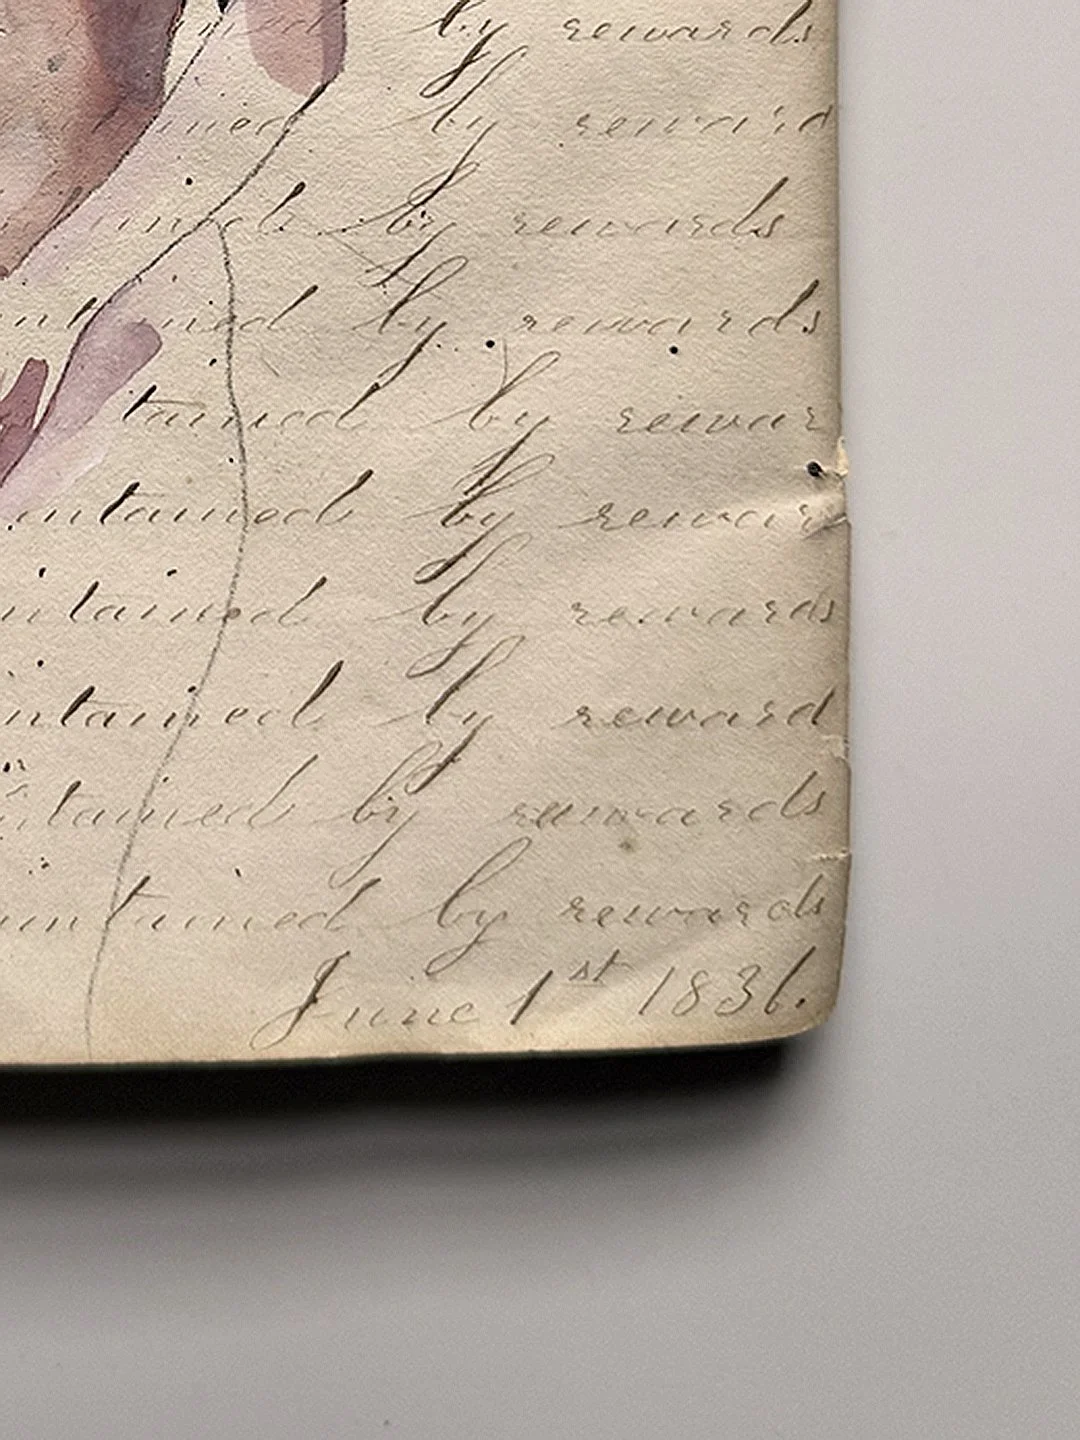 by rewards
ined by reward
ined by rewards
ntained by rewards
tained by rewar
ntained by reward
ntained by rewards
ntained by reward
ntained by rewards
untained by rewards
June 1st 1836.